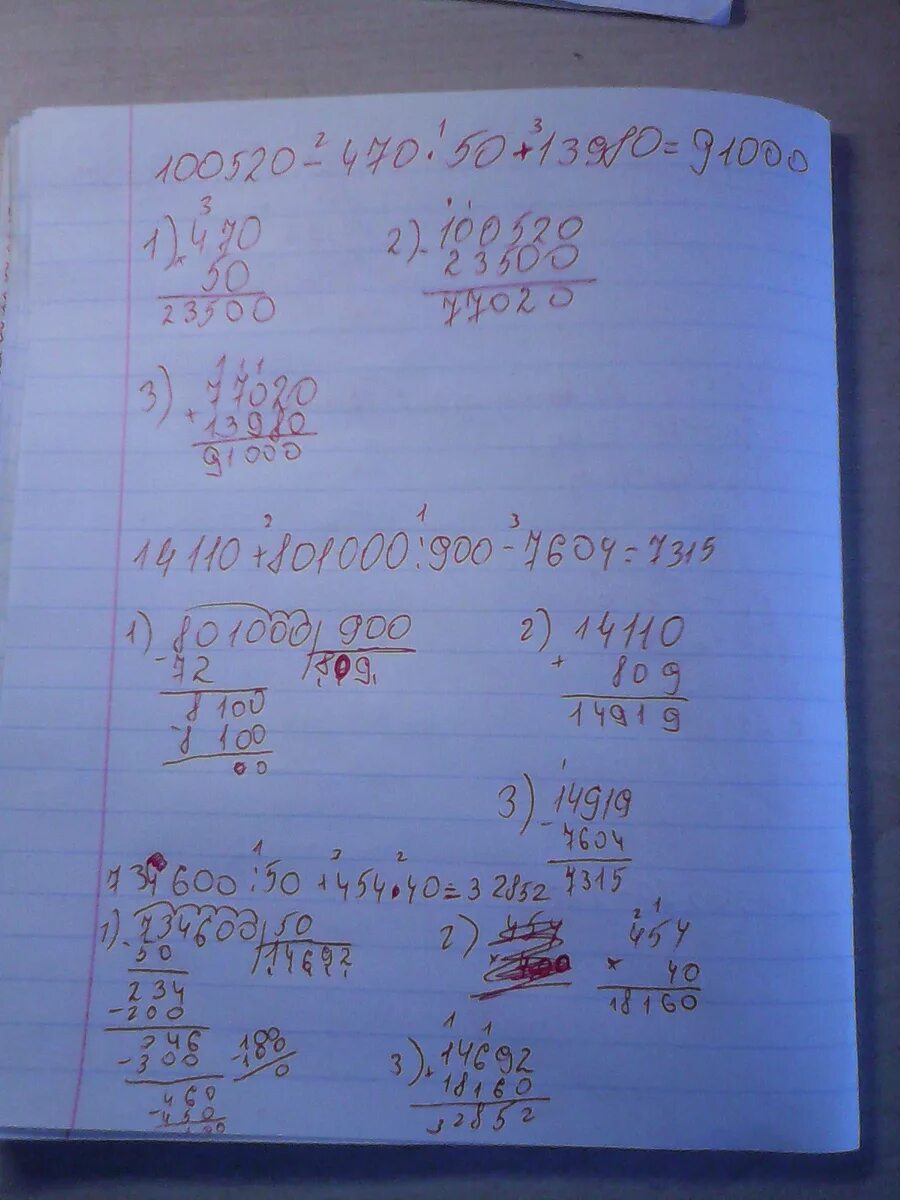 100520 - 470 · 50 + 13980 = 91000
2 1 3
1) 470
× 50
23500
3
2) 100520
- 23500
77020
3) 77020
+ 13980
91000
1 1 1
14110 + 801000 : 900 - 7604 = 7315
2 1 3
1) 801000 | 900
- 72 | 809
8100
- 8100
00
2) 14110
+ 809
14919
3) 14919
- 7604
7315
734600 : 50 + 454 · 40 = 32852
1 3 2
1) 734600 | 50
- 50 | 14692
234
- 200
346
- 300
460
- 450
100
- 100
0
2) 454
× 40
18160
2 1
3) 14692
+ 18160
32852
1 1